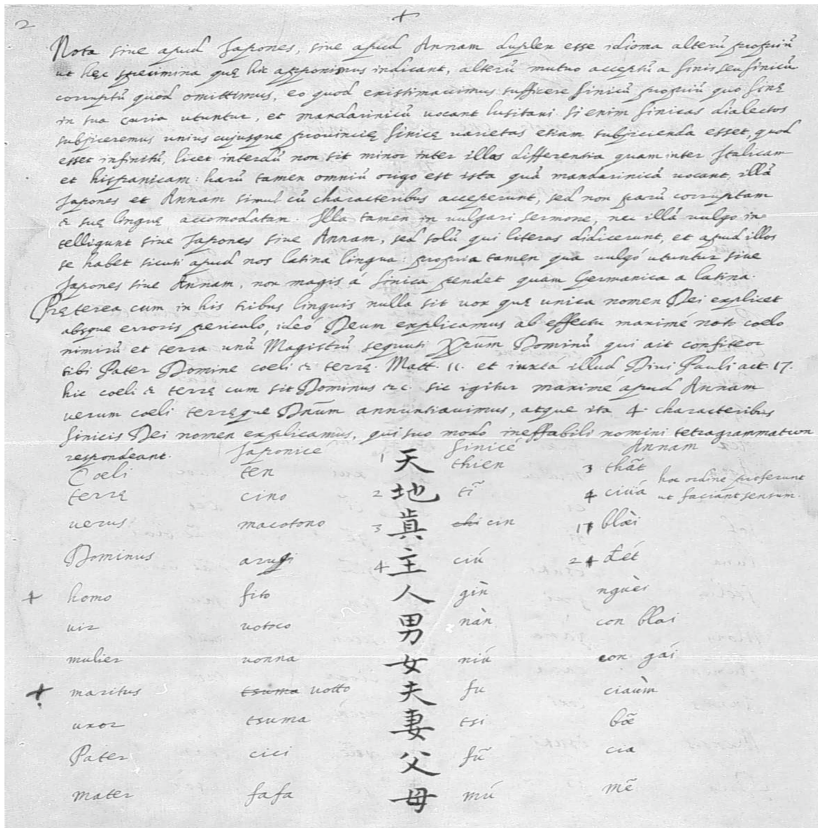 2
Nota sive apud Japones, sive apud Annam duplex esse idioma alterũ propriũ
ut hęc specimina quę hic apponimus indicant, alterũ mutuo acceptũ a Sinis seu Sinicũ
corruptũ quod omittimus, eo quod existimavimus sufficere Sinicũ propriũ quo Sinę
in sua curia utuntur, et mandarinicũ vocant Lusitani si enim Sinicas dialectos
subjiceremus unius cujusque provincię Sinicę varietas etiam subjicienda esset, quod
esset infinitũ, licet interdũ non sit minor inter illas differentia quam inter Italicam
et hispanicam: harũ tamen omniũ origo est ista quã mandarinicã vocant, illã
Japones et Annam simul cũ characteribus acceperunt, sed non parũ corruptam
& suę linguę accomodatam. Illa tamen in vulgari sermone, nec illã vulgo in-
telligunt sive Japones sive Annam, sed solũ qui literas didicerunt, et apud illos
se habet sicuti apud nos latina lingua: propria tamen qua vulgò utuntur sive
Japones sive Annam, non magis á Sinica pendet quam Germanica a latina.
Pręterea cum in his tribus linguis nulla sit vox quę unica nomen Dei explicet
absque erroris periculo, ideò Deum explicamus ab effectu maximé noto coelo
nimirũ et terra unũ Magistrũ sequuti Xrũm Dominũ qui ait confiteor
tibi Pater Domine coeli & terrę. Matt. 11. et iuxta illud Divi Pauli act. 17.
hic coeli & terrę cum sit Dominus &c. sic igitur maxime apud Annam
verum coeli terręque Dnũm annuntiavimus, atque ita 4 characteribus
Sinicis Dei nomen explicamus, qui suo modo ineffabili nomini tetragrammaton
respondeant. Japonice Sinicè Annam
Coeli ten 1 天 thien 3 thãt hoc ordine proferunt
terrę cino 2 地 tĩ 4 ciúa ut faciant sensum.
verus macotono 3 真 cin 1 blòi
Dominus aruji 4 主 ciú 2 đét
homo fito 人 gin ngùèi
vir votoco 男 nàn con blai
mulier vonna 女 niú con gái
maritus tsuma votto 夫 fu ciaùm
uxor tsuma 妻 tsi bõ
Pater cici 父 fũ cia
mater fafa 母 mú mẽ